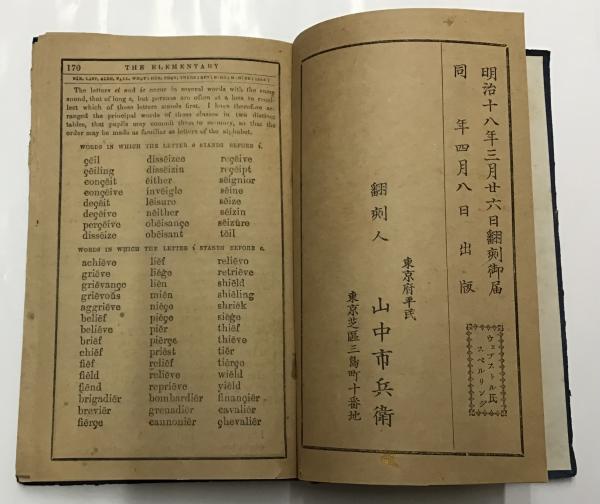 170 THE ELEMENTARY
The letters ei and ie occur in several words with the same
sound, that of long e, but persons are often at a loss to recol-
lect which of these letters stands first. I have therefore ar-
ranged the principal words of these classes in two distinct
tables, that pupils may commit them to memory, so that the
order may be made as familiar as letters of the alphabet.
WORDS IN WHICH THE LETTER e STANDS BEFORE i.
çēil dissēizee reçēive
çēiling dissēizin reçēipt
conçēit ēither sēignior
conçēive invēigle sēine
deçēit lēisure sēize
deçēive nēither sēizin
perçēive obēisançe sēizūre
dissēize obēisant tēil
WORDS IN WHICH THE LETTER i STANDS BEFORE e.
achiēve liēf reliēvo
griēve liēġe retriēve
griēvançe liēn shiēld
griēvoŭs miēn shiēling
aggriēve niēçe shriēk
beliēf piēr siēġe
beliēve piēr thiēf
briēf piērçe thiēve
chiēf priēst tiēr
fiēf reliēf tiērçe
fiēld reliēve wiēld
fiēnd repriēve yiēld
brigadiēr bombardiēr finançiēr
breviēr grenadiēr cavaliēr
fiērçe cannoniēr çhevaliēr
明治十八年三月廿六日翻刻御届
同年四月八日出版
ウェブストル氏
スペルリング
翻刻人
東京府平民
山中市兵衛
東京芝區三島町十番地